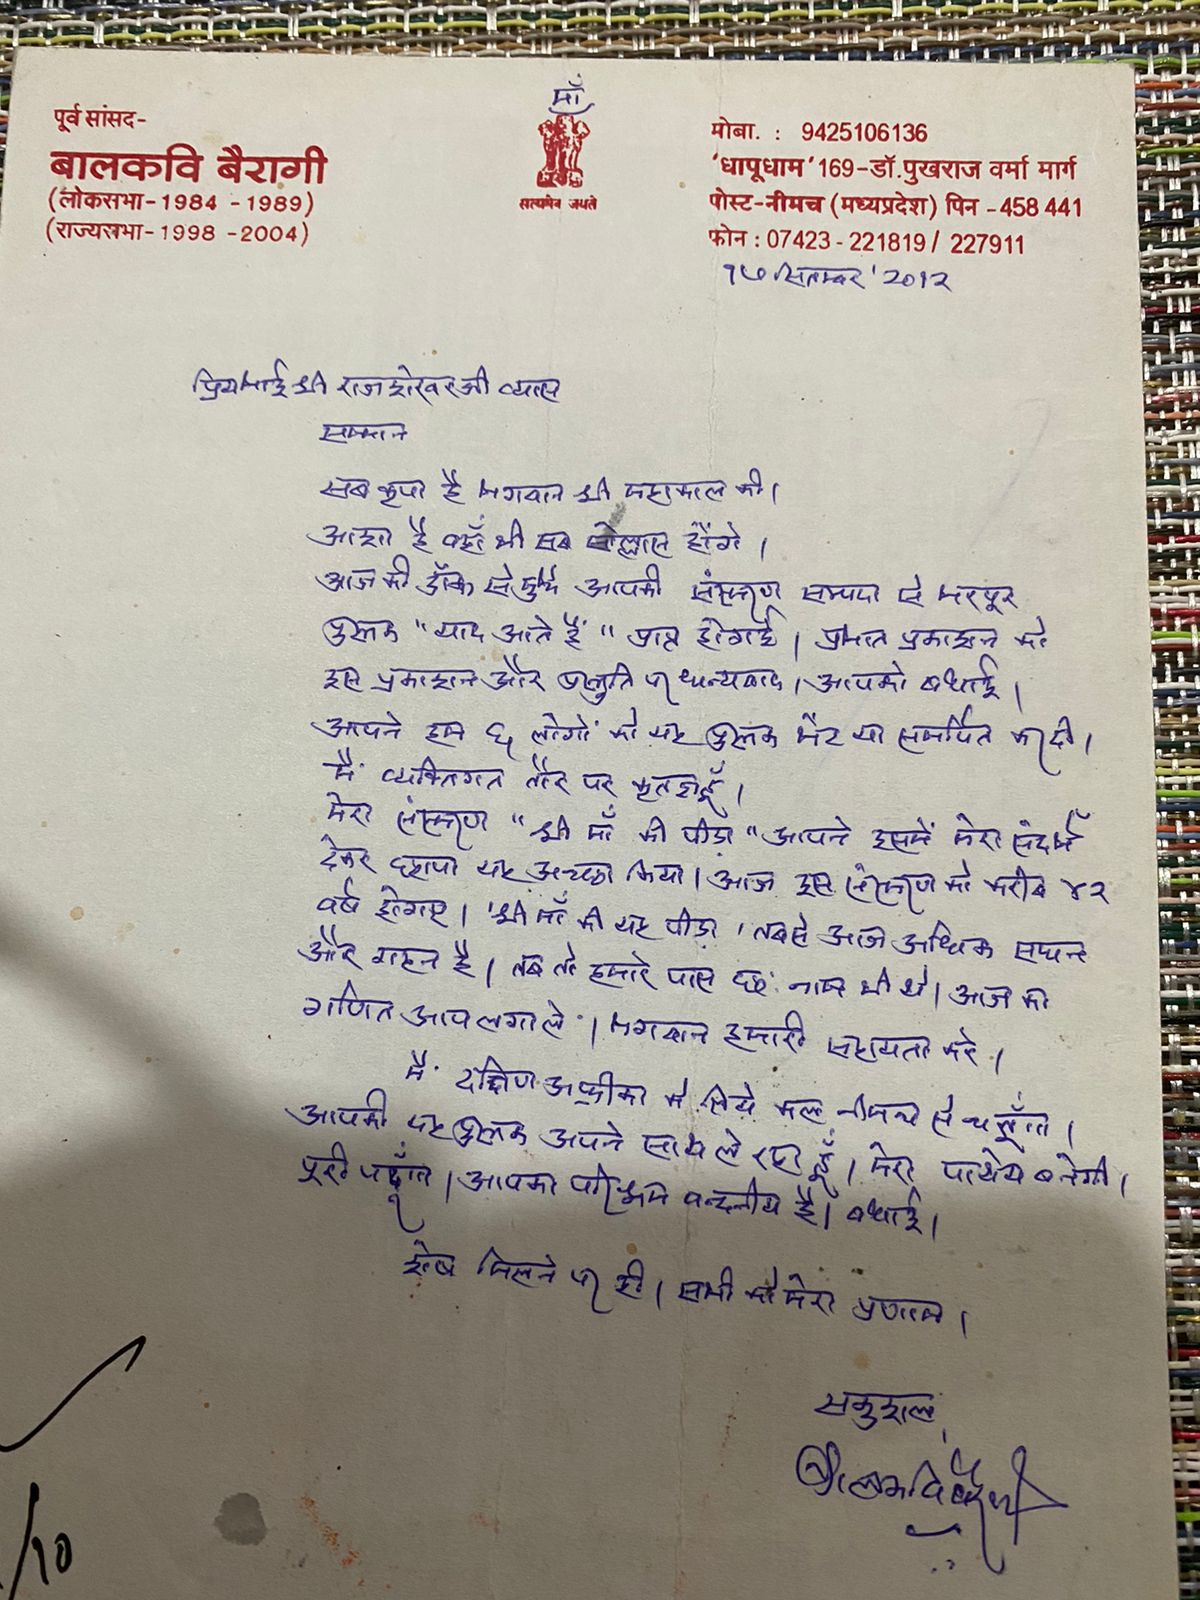 माँ
पूर्व सांसद-
बालकवि बैरागी
(लोकसभा-1984 -1989)
(राज्यसभा-1998 -2004)
सत्यमेव जयते
मोबा. : 9425106136
'धापूधाम' 169-डॉ.पुखराज वर्मा मार्ग
पोस्ट-नीमच (मध्यप्रदेश) पिन -458 441
फोन : 07423 - 221819 / 227911
१७ सितम्बर '२०१२
प्रिय भाई श्री राजशेखर जी व्यास
सम्मान
सब कृपा है भगवान श्री महाकाल की।
आशा है वहाँ भी सब सोल्लास होंगे।
आज की डाँक से मुझे आपकी संस्मरण सम्पदा से भरपूर
पुस्तक "याद आते हैं" प्राप्त होगई। प्रभात प्रकाशन को
इस प्रकाशन और प्रस्तुति पर धन्यवाद। आपको बधाई।
आपने हम ६ लोगों को यह पुस्तक भेंट या समर्पित कर दी।
मैं व्यक्तिगत तौर पर कृतज्ञ हूँ।
मेरा संस्मरण "श्री माँ की पीड़ा" आपने इसमें मेरा संदर्भ
देकर छापा यह अच्छा किया। आज इस संस्मरण को करीब ४२
वर्ष होगए। 'श्री माँ की यह पीड़ा' तबसे आज अधिक सघन
और गहन है। तब तो हमारे पास छह: नाम भी थे। आज की
गणित आप लगालें। भगवान हमारी सहायता करे।
मैं दक्षिण अफ्रीका के लिये कल नीमच से चलूँगा।
आपकी यह पुस्तक अपने साथ ले रहा हूँ। मेरा पाथेय बनेगी।
पूरी पढ़ूँगा। आपका परिश्रम वन्दनीय है। बधाई।
शेष मिलने पर ही। सभी को मेरा प्रणाम।
सकुशल
बालकवि बैरागी
/10